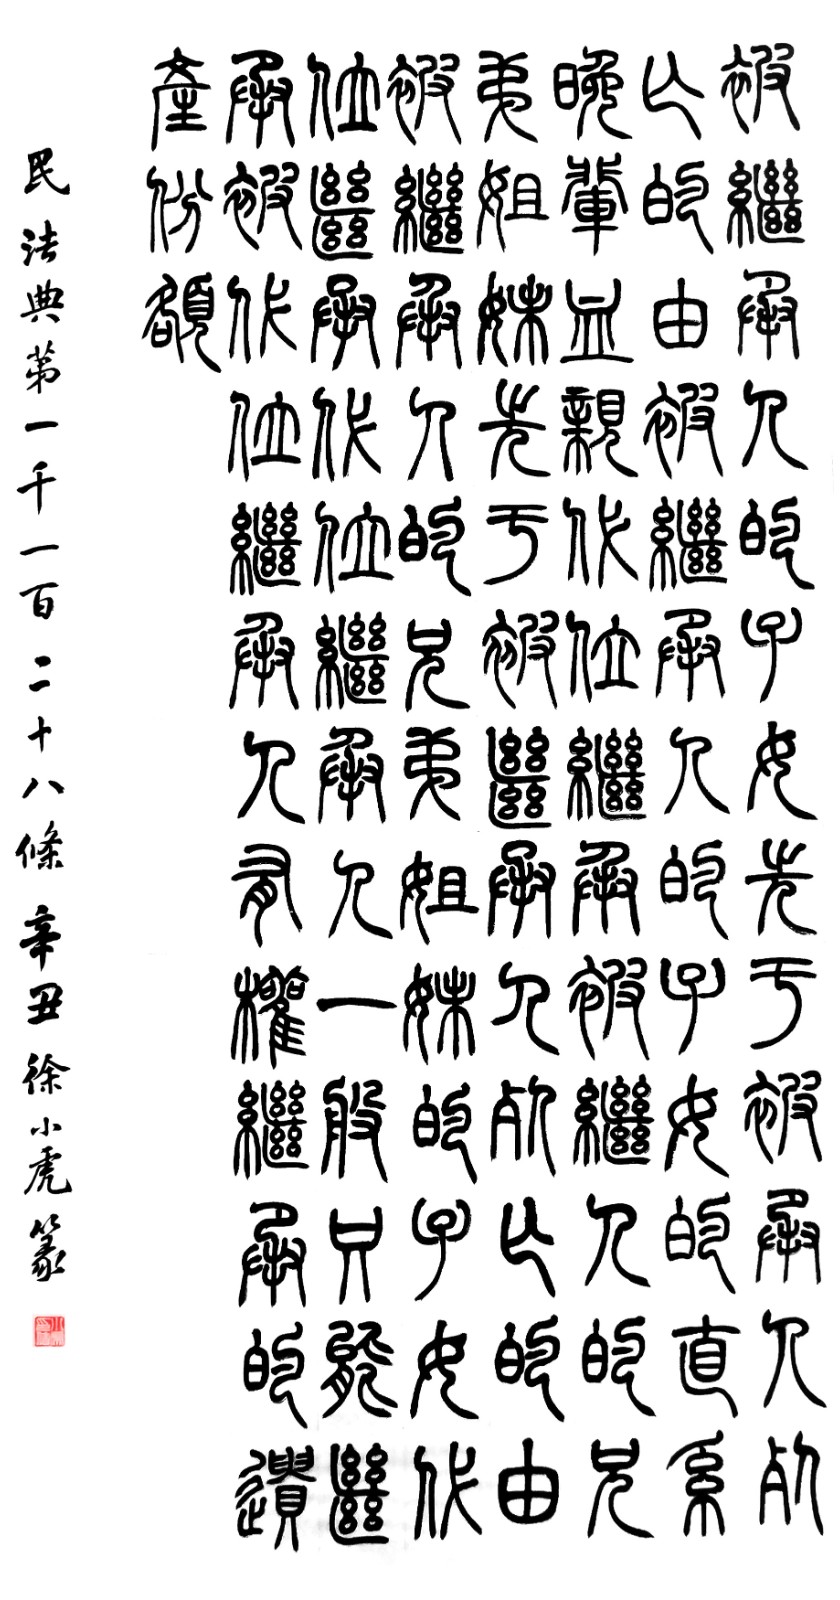 被繼承人的子女先于被承人死
亡的由被繼承人的子女的直系
晚輩血親代位繼承被繼人的兄
弟姐妹先于被繼承人死亡的由
被繼承人的兄弟姐妹的子女代
位繼承代位繼承人一般只能繼
承被代位繼承人有權繼承的遺
產份額
民法典第一千一百二十八條 辛丑 徐小虎篆